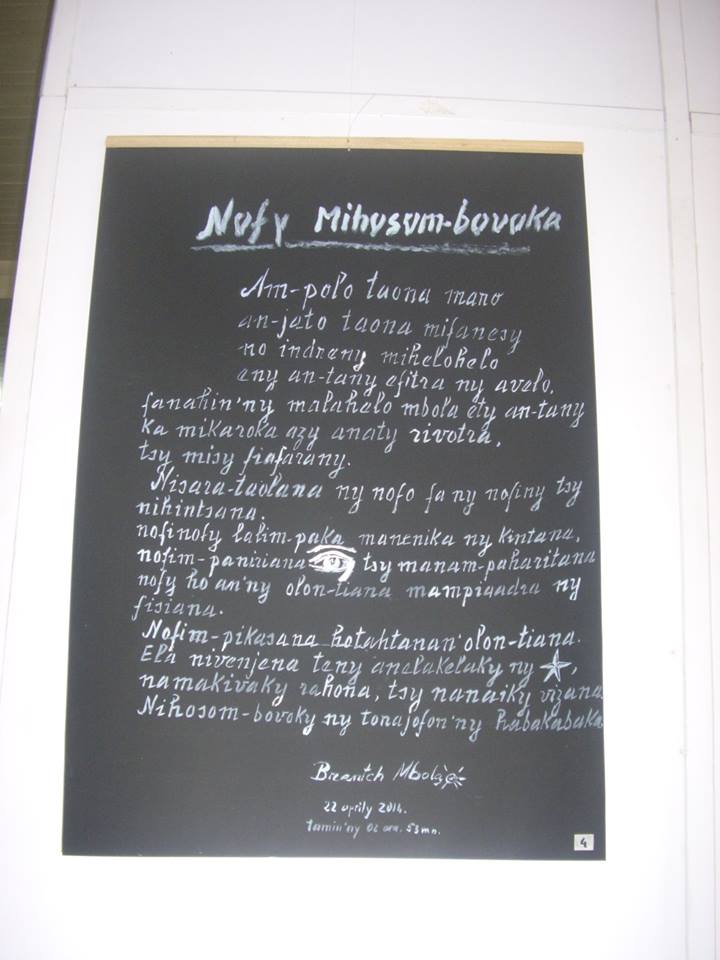 Nofy Mihosom-bovoka
Am-polo taona maro
an-jato taona mifanesy
no indreny mihelohelo
eny an-tany efitra ny avelo,
fanahin'ny malahelo mbola ety an-tany
ka mikaroka azy anaty rivotra,
tsy misy fiafarany.
Nisara-taolana ny nofo fa ny nofiny tsy
nihintsana.
nofinofy lalim-paka manenika ny kintana,
nofim-paniriana tsy manam-paharitana
nofy ho an'ny olon-tiana mampiaadra ny
fisiana.
Nofim-pikasana hotahtanan' olon-tiana.
Ela nivenjena teny anelakelaky ny
namakivaky rahona, tsy nanaiky vizana
Nihosom-bovoky ny tonajofon'ny habakabaka
22 aprily 2014.
tamin'ny 02 ora. 53mn.
4